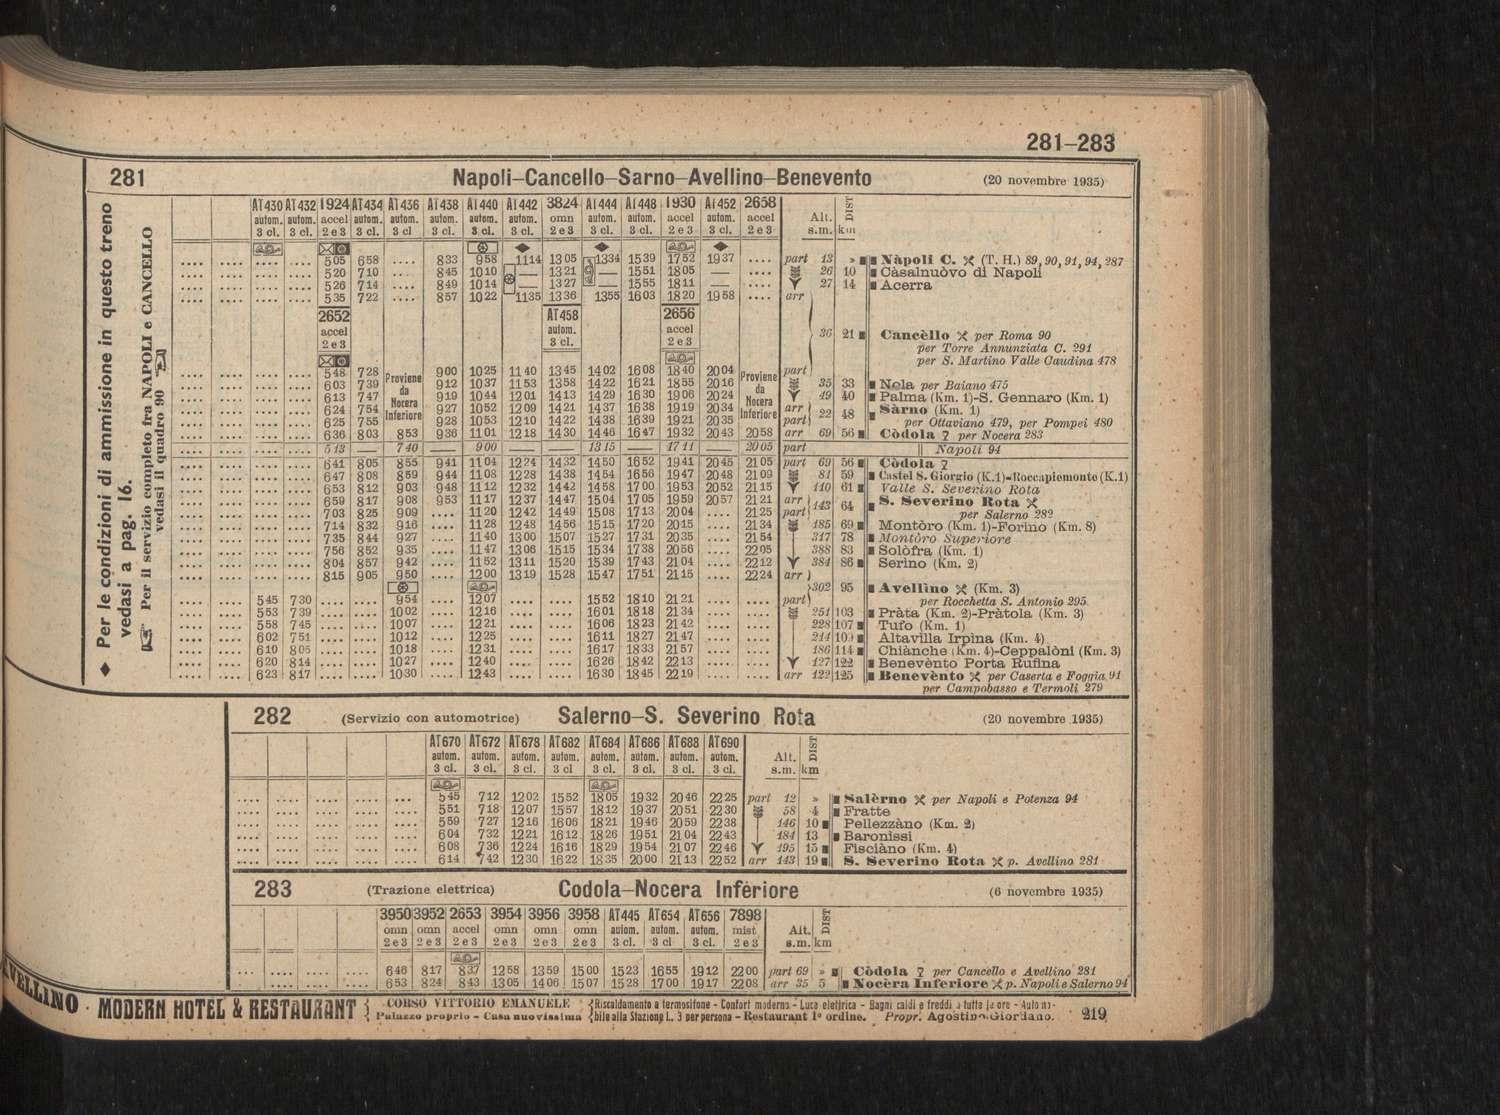 281–283
281 Napoli–Cancello–Sarno–Avellino–Benevento (20 novembre 1935)
◆ Per le condizioni di ammissione in questo treno
vedasi a pag. 16.
Per il servizio completo fra NAPOLI e CANCELLO
vedasi il quadro 90
AT430 AT432 1924 AT434 AT436 AT438 AT440 AT442 3824 AT444 AT448 1930 AT452 2658
autom. autom. accel autom. autom. autom. autom. autom. omn autom. autom. accel autom. accel Alt. DIST
3 cl. 3 cl. 2 e 3 3 cl. 3 cl 3 cl. 3 cl. 3 cl. 2 e 3 3 cl. 3 cl. 2 e 3 3 cl. 2 e 3 s.m. km
.... .... .... .... 505 658 .... 833 958 1114 1305 1334 1539 1752 1937 .... part 13 » Nàpoli C. (T. H.) 89, 90, 91, 94, 287
.... .... .... .... 520 710 .... 845 1010 1321 — 1551 1805 — .... 26 10 Càsalnuòvo di Napoli
.... .... .... .... 526 714 .... 849 1014 — 1327 — 1555 1811 — .... 27 14 Acerra
.... .... .... .... 535 722 .... 857 1022 1135 1336 1355 1603 1820 1958 .... arr
2652 AT458 2656
accel autom. accel 36 21 Cancèllo per Roma 90
2 e 3 3 cl. 2 e 3 per Torre Annunziata C. 291
per S. Martino Valle Caudina 478
.... .... .... .... 548 728 Proviene da Nocera Inferiore 900 1025 1140 1345 1402 1608 1840 2004 Proviene da Nocera Inferiore part
.... .... .... .... 603 739 912 1037 1153 1358 1422 1621 1855 2016 35 33 Nola per Baiano 475
.... .... .... .... 613 747 919 1044 1201 1413 1429 1630 1906 2024 49 40 Palma (Km. 1)-S. Gennaro (Km. 1)
.... .... .... .... 624 754 927 1052 1209 1421 1437 1638 1919 2034 arr 22 48 Sàrno (Km. 1)
.... .... .... .... 625 755 928 1053 1210 1422 1438 1639 1921 2035 part per Ottaviano 479, per Pompei 480
.... .... .... .... 636 803 853 936 1101 1218 1430 1446 1647 1932 2043 2058 arr 69 56 Còdola per Nocera 283
513 — 740 — 900 — — 1315 — 1711 — 2005 part Napoli 94
.... .... .... .... 641 805 855 941 1104 1224 1432 1450 1652 1941 2045 2105 part 69 56 Còdola
.... .... .... .... 647 808 859 944 1108 1228 1438 1454 1656 1947 2048 2109 81 59 Castel S. Giorgio (K.1)-Roccapiemonte (K.1)
.... .... .... .... 653 812 903 948 1112 1232 1442 1458 1700 1953 2052 2115 110 61 Valle S. Severino Rota
.... .... .... .... 659 817 908 953 1117 1237 1447 1504 1705 1959 2057 2121 arr 143 64 S. Severino Rota
.... .... .... .... 703 825 909 .... 1120 1242 1449 1508 1713 2004 .... 2125 part per Salerno 282
.... .... .... .... 714 832 916 .... 1128 1248 1456 1515 1720 2015 .... 2134 185 69 Montòro (Km. 1)-Forino (Km. 8)
.... .... .... .... 735 844 927 .... 1140 1300 1507 1527 1731 2035 .... 2154 317 78 Montòro Superiore
.... .... .... .... 756 852 935 .... 1147 1306 1515 1534 1738 2056 .... 2205 388 83 Solòfra (Km. 1)
.... .... .... .... 804 857 942 .... 1152 1311 1520 1539 1743 2104 .... 2212 384 86 Serino (Km. 2)
.... .... .... .... 815 905 950 .... 1200 1319 1528 1547 1751 2115 .... 2224 arr
302 95 Avellino (Km. 3)
.... .... 545 730 .... .... 954 .... 1207 .... .... 1552 1810 2121 .... .... part per Rocchetta S. Antonio 295
.... .... 553 739 .... .... 1002 .... 1216 .... .... 1601 1818 2134 .... .... 251 103 Pràta (Km. 2)-Pràtola (Km. 3)
.... .... 558 745 .... .... 1007 .... 1221 .... .... 1606 1823 2142 .... .... 228 107 Tufo (Km. 1)
.... .... 602 751 .... .... 1012 .... 1225 .... .... 1611 1827 2147 .... .... 211 109 Altavilla Irpina (Km. 4)
.... .... 610 805 .... .... 1018 .... 1231 .... .... 1617 1833 2157 .... .... 186 114 Chiànche (Km. 4)-Ceppalòni (Km. 3)
.... .... 620 814 .... .... 1027 .... 1240 .... .... 1626 1842 2213 .... .... 127 122 Benevènto Porta Rufina
.... .... 623 817 .... .... 1030 .... 1243 .... .... 1630 1845 2219 .... .... arr 122 125 Benevènto per Caserta e Foggia 91
per Campobasso e Termoli 279
282 (Servizio con automotrice) Salerno–S. Severino Rota (20 novembre 1935)
AT670 AT672 AT678 AT682 AT684 AT686 AT688 AT690
autom. autom. autom. autom. autom. autom. autom. autom. Alt. DIST
3 cl. 3 cl. 3 cl. 3 cl 3 cl. 3 cl. 3 cl. 3 cl. s.m. km
.... .... .... .... ... 545 712 1202 1552 1805 1932 2046 2225 part 12 » Salèrno per Napoli e Potenza 94
.... .... .... .... .... 551 718 1207 1557 1812 1937 2051 2230 58 4 Fratte
.... .... .... .... .... 559 727 1216 1606 1821 1946 2059 2238 146 10 Pellezzàno (Km. 2)
.... .... .... .... .... 604 732 1221 1612 1826 1951 2104 2243 184 13 Baronissi
.... .... .... .... .... 608 736 1224 1616 1829 1954 2107 2246 195 15 Fisciàno (Km. 4)
.... .... .... .... .... 614 742 1230 1622 1835 2000 2113 2252 arr 143 19 S. Severino Rota p. Avellino 281
283 (Trazione elettrica) Codola–Nocera Inferiore (6 novembre 1935)
3950 3952 2653 3954 3956 3958 AT445 AT654 AT656 7898
omn omn accel omn omn omn autom. autom. autom. mist Alt. DIST
2 e 3 2 e 3 2 e 3 2 e 3 2 e 3 2 e 3 3 cl. 3 cl 3 cl. 2 e 3 s.m. km
... .... .... .... 646 817 837 1258 1359 1500 1523 1655 1912 2200 part 69 » Còdola per Cancello e Avellino 281
... .... .... .... 653 824 843 1305 1406 1507 1528 1700 1917 2208 arr 35 5 Nocèra Inferiore p. Napoli e Salerno 94
AVELLINO · MODERN HOTEL & RESTAURANT
CORSO VITTORIO EMANUELE
Palazzo proprio – Casa nuovissima
Riscaldamento a termosifone - Confort moderno - Luce elettrica - Bagni caldi e freddi a tutte le ore - Automo-
bile alla Stazione L. 3 per persona – Restaurant 1º ordine. Propr. Agostino Giordano.
219